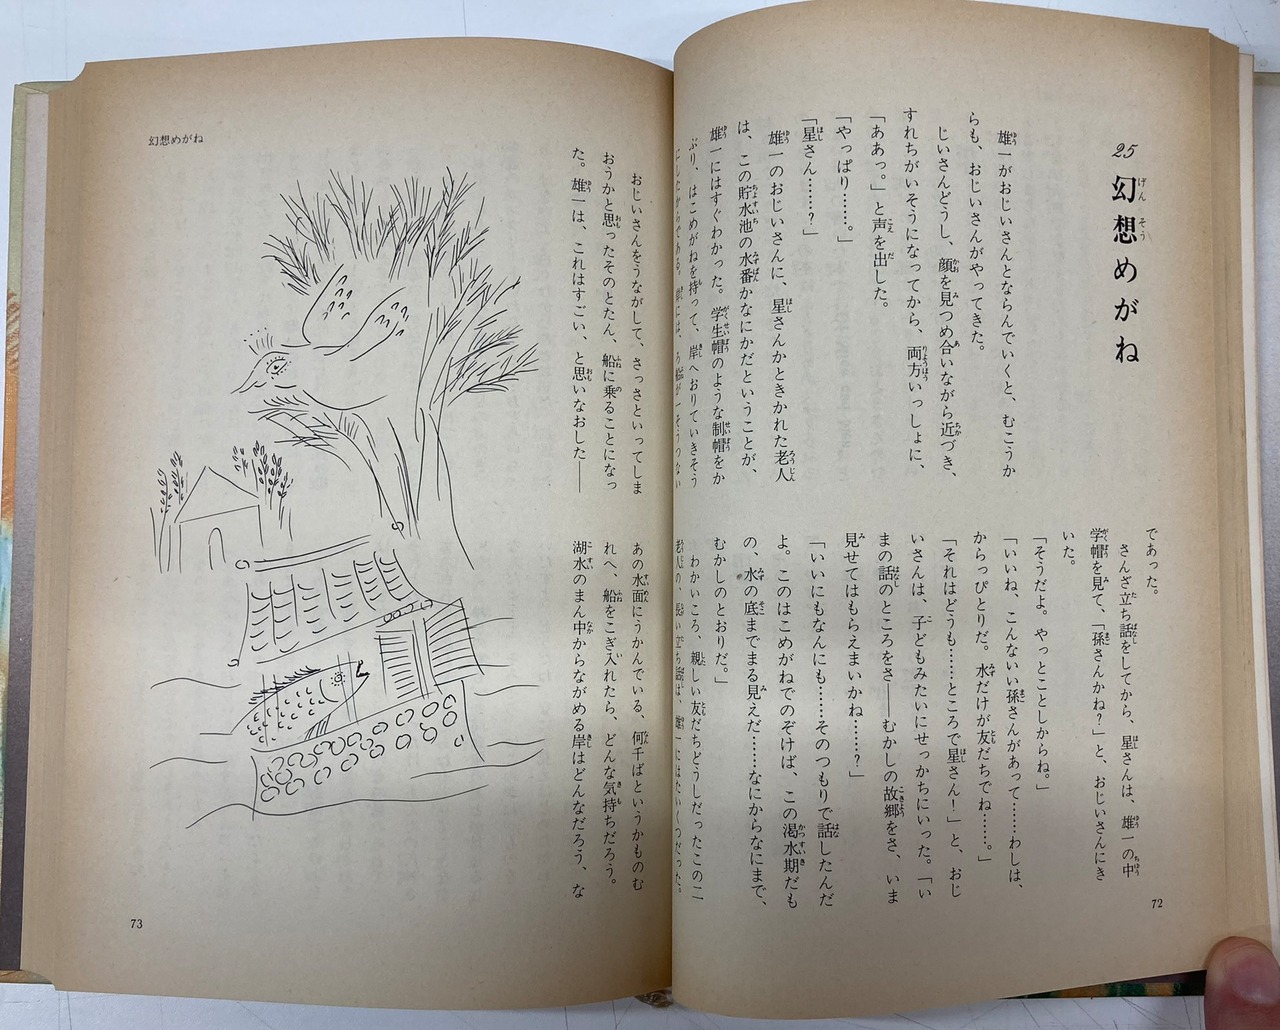 25 幻想めがね
雄一がおじいさんとならんでいくと、むこうか
らも、おじいさんがやってきた。
じいさんどうし、顔を見つめ合いながら近づき、
すれちがいそうになってから、両方いっしょに、
「ああっ。」と声を出した。
「やっぱり……。」
「星さん……？」
雄一のおじいさんに、星さんかときかれた老人
は、この貯水池の水番かなにかだということが、
雄一にはすぐわかった。学生帽のような制帽をか
ぶり、はこめがねを持って、岸へおりていきそう
にしたからである。岸には、ろ船が一そうつない
であった。
さんざ立ち話をしてから、星さんは、雄一の中
学帽を見て、「孫さんかね？」と、おじいさんにき
いた。
「そうだよ。やっとことしからね。」
「いいね、こんないい孫さんがあって……わしは、
からっぴとりだ。水だけが友だちでね……。」
「それはどうも……ところで星さん！」と、おじ
いさんは、子どもみたいにせっかちにいった。「い
まの話のところをさ――むかしの故郷をさ、いま
見せてはもらえまいかね……？」
「いいにもなんにも……そのつもりで話したんだ
よ。このはこめがねでのぞけば、この渇水期だも
の、水の底までまる見えだ……なにからなにまで、
むかしのとおりだ。」
わかいころ、親しい友だちどうしだったこの二
老人の、長い立ち話は、雄一にはたいくつだった。
72
幻想めがね
おじいさんをうながして、さっさといってしま
おうかと思ったそのとたん、船に乗ることになっ
た。雄一は、これはすごい、と思いなおした――
あの水面にうかんでいる、何千ばというかものむ
れへ、船をこぎ入れたら、どんな気持ちだろう。
湖水のまん中からながめる岸はどんなだろう、な
73